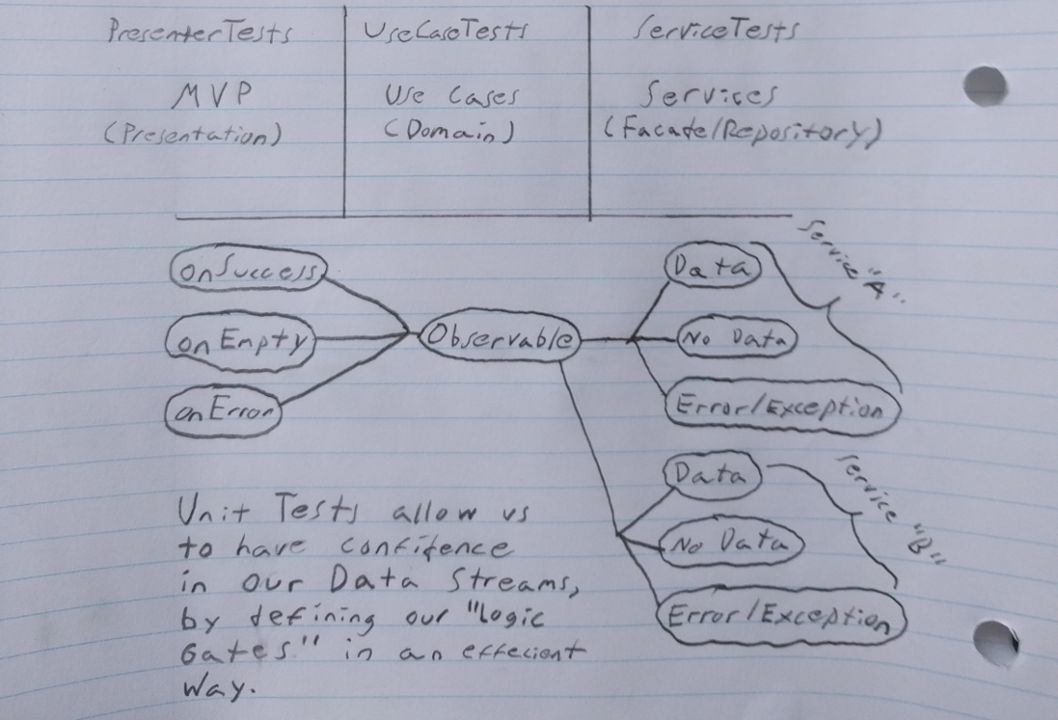 PresenterTests
UseCaseTests
ServiceTests
MVP
(Presentation)
Use Cases
(Domain)
Services
(Facade/Repository)
onSuccess
onEmpty
onError
Observable
Data
No Data
Error/Exception
Service "A"
Data
No Data
Error/Exception
Service "B"
Unit Tests allow us
to have confidence
in our Data Streams,
by defining our "logic
Gates" in an effecient
way.